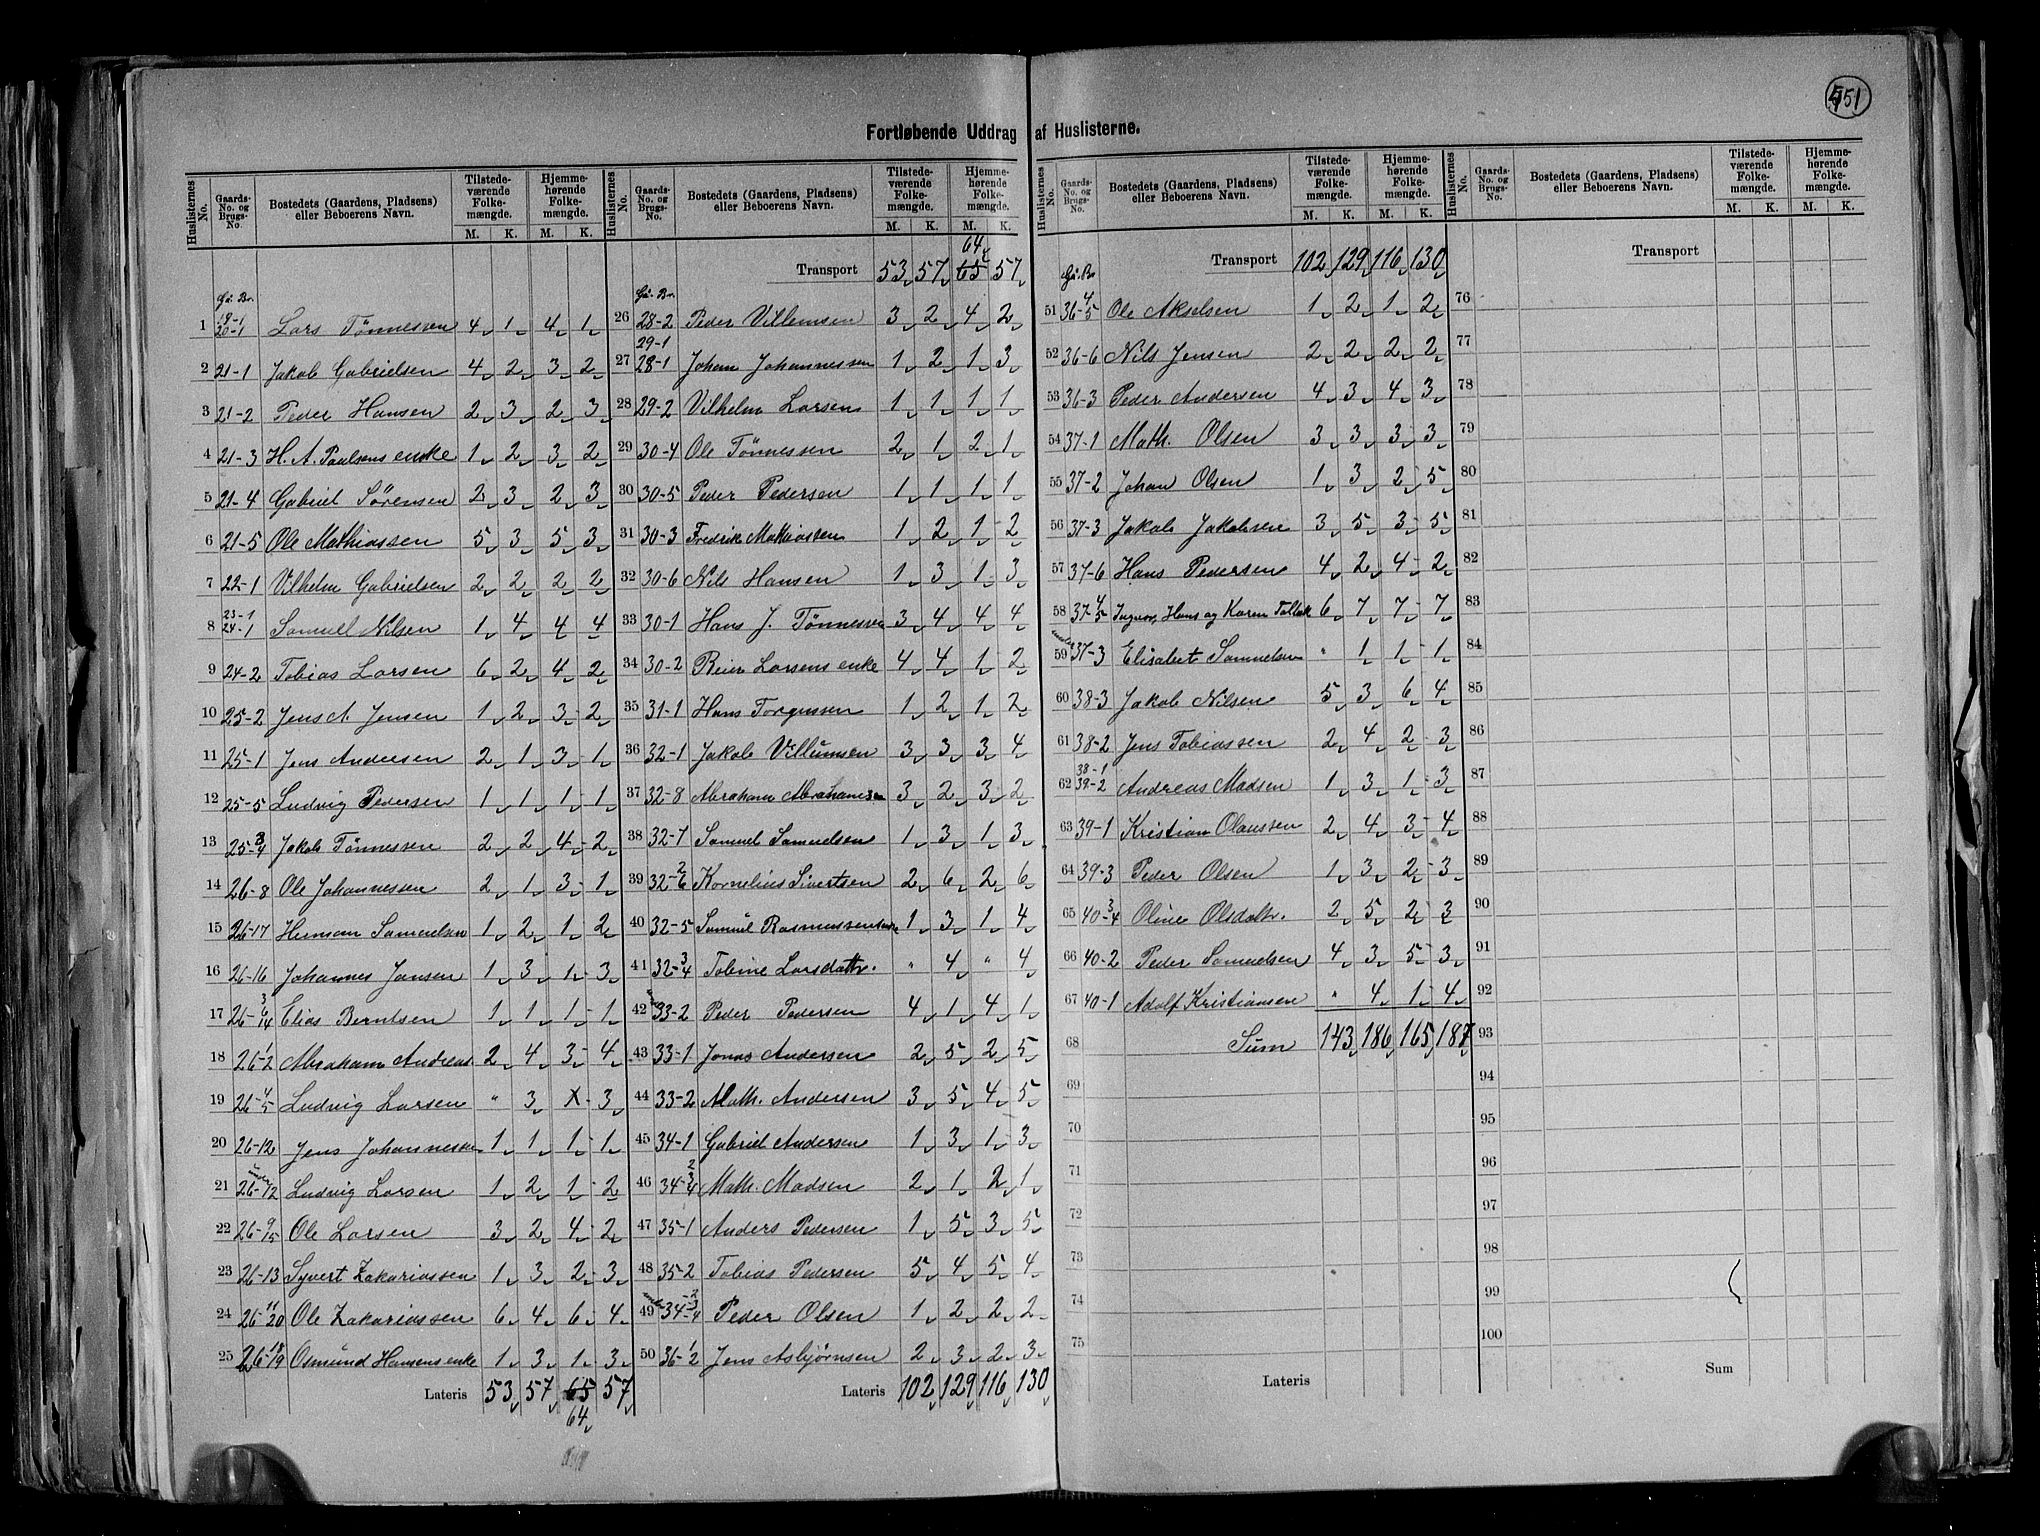 451
Fortløbende Uddrag af Huslisterne.
Huslisternes No. Gaards-No. og Brugs-No. Bostedets (Gaardens, Pladsens) eller Beboerens Navn. Tilstede-værende Folke-mængde. M. K. Hjemme-hørende Folke-mængde. M. K.
Gå. Br.
1 19-1 20-1 Lars Tönnessen 4 1 4 1
2 21-1 Jakob Gabrielsen 4 2 3 2
3 21-2 Peder Hansen 2 3 2 3
4 21-3 H. A. Paulsens enke 1 2 3 2
5 21-4 Gabriel Sörensen 2 3 2 3
6 21-5 Ole Mathiassen 5 3 5 3
7 22-1 Vilhelm Gabrielsen 2 2 2 2
8 23-1 24-1 Samuel Nilsen 1 4 4 4
9 24-2 Tobias Larsen 6 2 4 2
10 25-2 Jens A. Jensen 1 2 3 2
11 25-1 Jens Andersen 2 1 3 1
12 25-5 Ludvig Pedersen 1 1 1 1
13 25-3/4 Jakob Tönnessen 2 2 4 2
14 26-8 Ole Johannessen 2 1 3 1
15 26-17 Herman Samuelsen 1 2 1 2
16 26-16 Johannes Jansen 1 3 1 3
17 26-3/6/14 Elias Berntsen 1 1 1 1
18 26-1/2 Abraham Andreas 2 4 3 4
19 26-4/5 Ludvig Larsen " 3 X 3
20 26-12 Jens Johannessen 1 1 1 1
21 under 26-12 Ludvig Larsen 1 2 1 2
22 26-9/15 Ole Larsen 3 2 4 2
23 26-13 Syvert Zakariassen 1 3 2 3
24 26-11/20 Ole Zakariassen 6 4 6 4
25 26-18/19 Osmund Hansens enke 1 3 1 3
Lateris 53 57 65 57
64
Huslisternes No. Gaards-No. og Brugs-No. Bostedets (Gaardens, Pladsens) eller Beboerens Navn. Tilstede-værende Folke-mængde. M. K. Hjemme-hørende Folke-mængde. M. K.
64
Transport 53 57 65 57
Gå. Br.
26 28-2 Peder Villemsen 3 2 4 2
27 29-1 28-1 Johan Johannessen 1 2 1 3
28 29-2 Vilhelm Larsen 1 1 1 1
29 30-4 Ole Tönnessen 2 1 2 1
30 30-5 Peder Pedersen 1 1 1 1
31 30-3 Fredrik Mathiassen 1 2 1 2
32 30-6 Nils Hansen 1 3 1 3
33 30-1 Hans J. Tönnessen 3 4 4 4
34 30-2 Reier Larsens enke 4 4 1 2
35 31-1 Hans Torgussen 1 2 1 2
36 32-1 Jakob Villumsen 3 3 3 4
37 32-8 Abraham Abrahamsen 3 2 3 2
38 32-7 Samuel Samuelsen 1 3 1 3
39 32-2/6 Kornelius Sivertsen 2 6 2 6
40 32-5 Samuel Rasmussens enke 1 3 1 4
41 32-3/4 Tobine Larsdattr. " 4 " 4
42 under 33-2 Peder Pedersen 4 1 4 1
43 33-1 Jonas Andersen 2 5 2 5
44 33-2 Math. Andersen 3 5 4 5
45 34-1 Gabriel Andersen 1 3 1 3
46 34-2/3/4 Math. Madsen 2 1 2 1
47 35-1 Anders Pedersen 1 5 3 5
48 35-2 Tobias Pedersen 5 4 5 4
49 under 34-2/3/4 Peder Olsen 1 2 2 2
50 36-1/2 Jens Asbjørnsen 2 3 2 3
Lateris 102 129 116 130
Huslisternes No. Gaards-No. og Brugs-No. Bostedets (Gaardens, Pladsens) eller Beboerens Navn. Tilstede-værende Folke-mængde. M. K. Hjemme-hørende Folke-mængde. M. K.
Gå. Br. Transport 102 129 116 130
51 36-4/5 Ole Akselsen 1 2 1 2
52 36-6 Nils Jensen 2 2 2 2
53 36-3 Peder Andersen 4 3 4 3
54 37-1 Math. Olsen 3 3 3 3
55 37-2 Johan Olsen 1 3 2 5
56 37-3 Jakob Jakobsen 3 5 3 5
57 37-6 Hans Pedersen 4 2 4 2
58 37-4/5 Ingvor, Hans og Karen Tallak 6 7 7 7
59 under 37-3 Elisabet Samuelsen " 1 1 1
60 38-3 Jakob Nilsen 5 3 6 4
61 38-2 Jens Tobiassen 2 4 2 3
62 38-1 39-2 Andreas Madsen 1 3 1 3
63 39-1 Kristian Olaussen 2 4 3 4
64 39-3 Peder Olsen 1 3 2 3
65 40-3/4 Oline Olsdattr. 2 5 2 3
66 40-2 Peder Samuelsen 4 3 5 3
67 40-1 Adolf Kristiansen " 4 1 4
68 Sum 143 186 165 187
69
70
71
72
73
74
75
Lateris
Huslisternes No. Gaards-No. og Brugs-No. Bostedets (Gaardens, Pladsens) eller Beboerens Navn. Tilstede-værende Folke-mængde. M. K. Hjemme-hørende Folke-mængde. M. K.
Transport
76
77
78
79
80
81
82
83
84
85
86
87
88
89
90
91
92
93
94
95
96
97
98
99
100
Sum